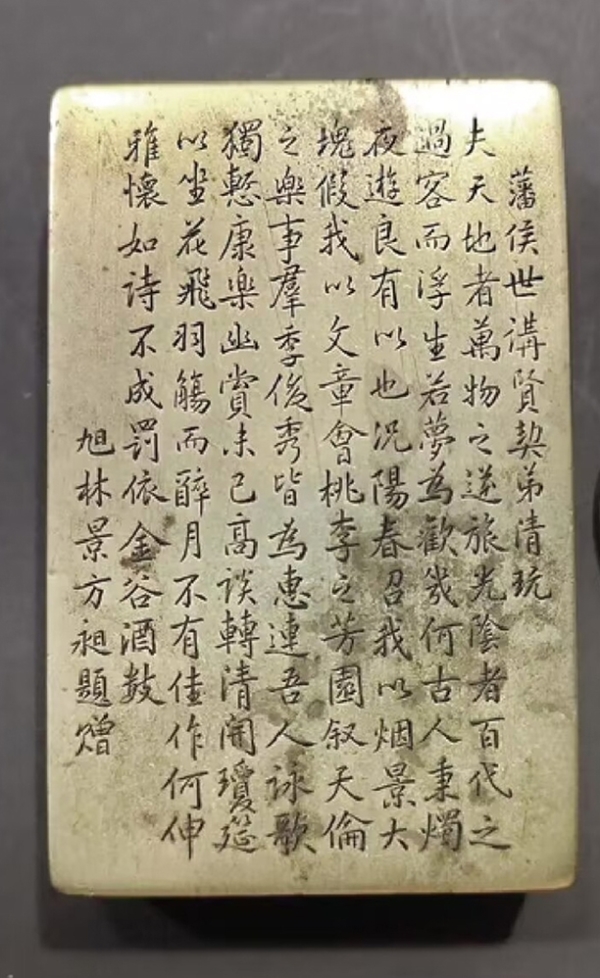 藩侯世講賢契弟清玩
夫天地者萬物之逆旅光陰者百代之
過客而浮生若夢為歡幾何古人秉燭
夜遊良有以也况陽春召我以烟景大
塊假我以文章會桃李之芳園叙天倫
之樂事羣季俊秀皆為惠連吾人詠歌
獨慙康樂幽賞未已高談轉清開瓊筵
以坐花飛羽觴而醉月不有佳作何伸
雅懷如詩不成罰依金谷酒數
旭林景方昶題贈